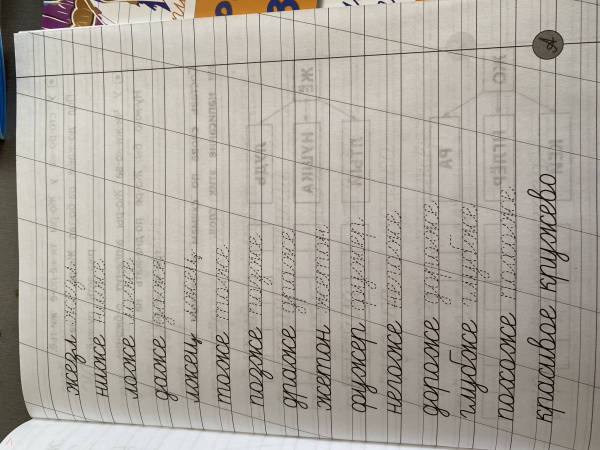 жезл жезл
ниже ниже
ложе ложе
даже даже
лжец лжец
тоже тоже
позже позже
драже драже
жетон жетон
фужер фужер
негоже негоже
дороже дороже
глубже глубже
похоже похоже
красивое кружево